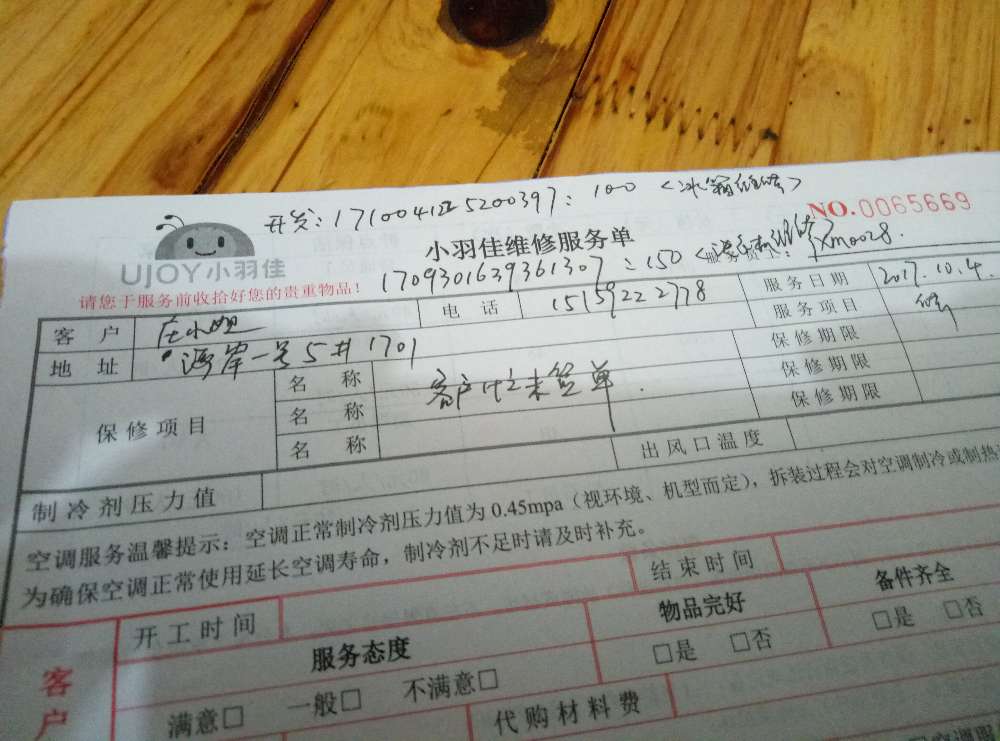 开发：1710041 5200397：100（冰箱维修）
NO.0065669
UJOY小羽佳
小羽佳维修服务单
1709301639361307：150
xm0028.
请您于服务前收拾好您的贵重物品！
客户 庄小姐 电话 15159222778 服务日期 2017.10.4.
地址 海岸一号5#1701 服务项目 修
保修项目 名称 客户中之未签单. 保修期限
名称 保修期限
名称 保修期限
制冷剂压力值 出风口温度
空调服务温馨提示：空调正常制冷剂压力值为0.45mpa（视环境、机型而定），拆装过程会对空调制冷或制热
为确保空调正常使用延长空调寿命，制冷剂不足时请及时补充。
客户 开工时间 结束时间
服务态度 物品完好 备件齐全
满意□ 一般□ 不满意□ □是 □否 □是 □否
代购材料费